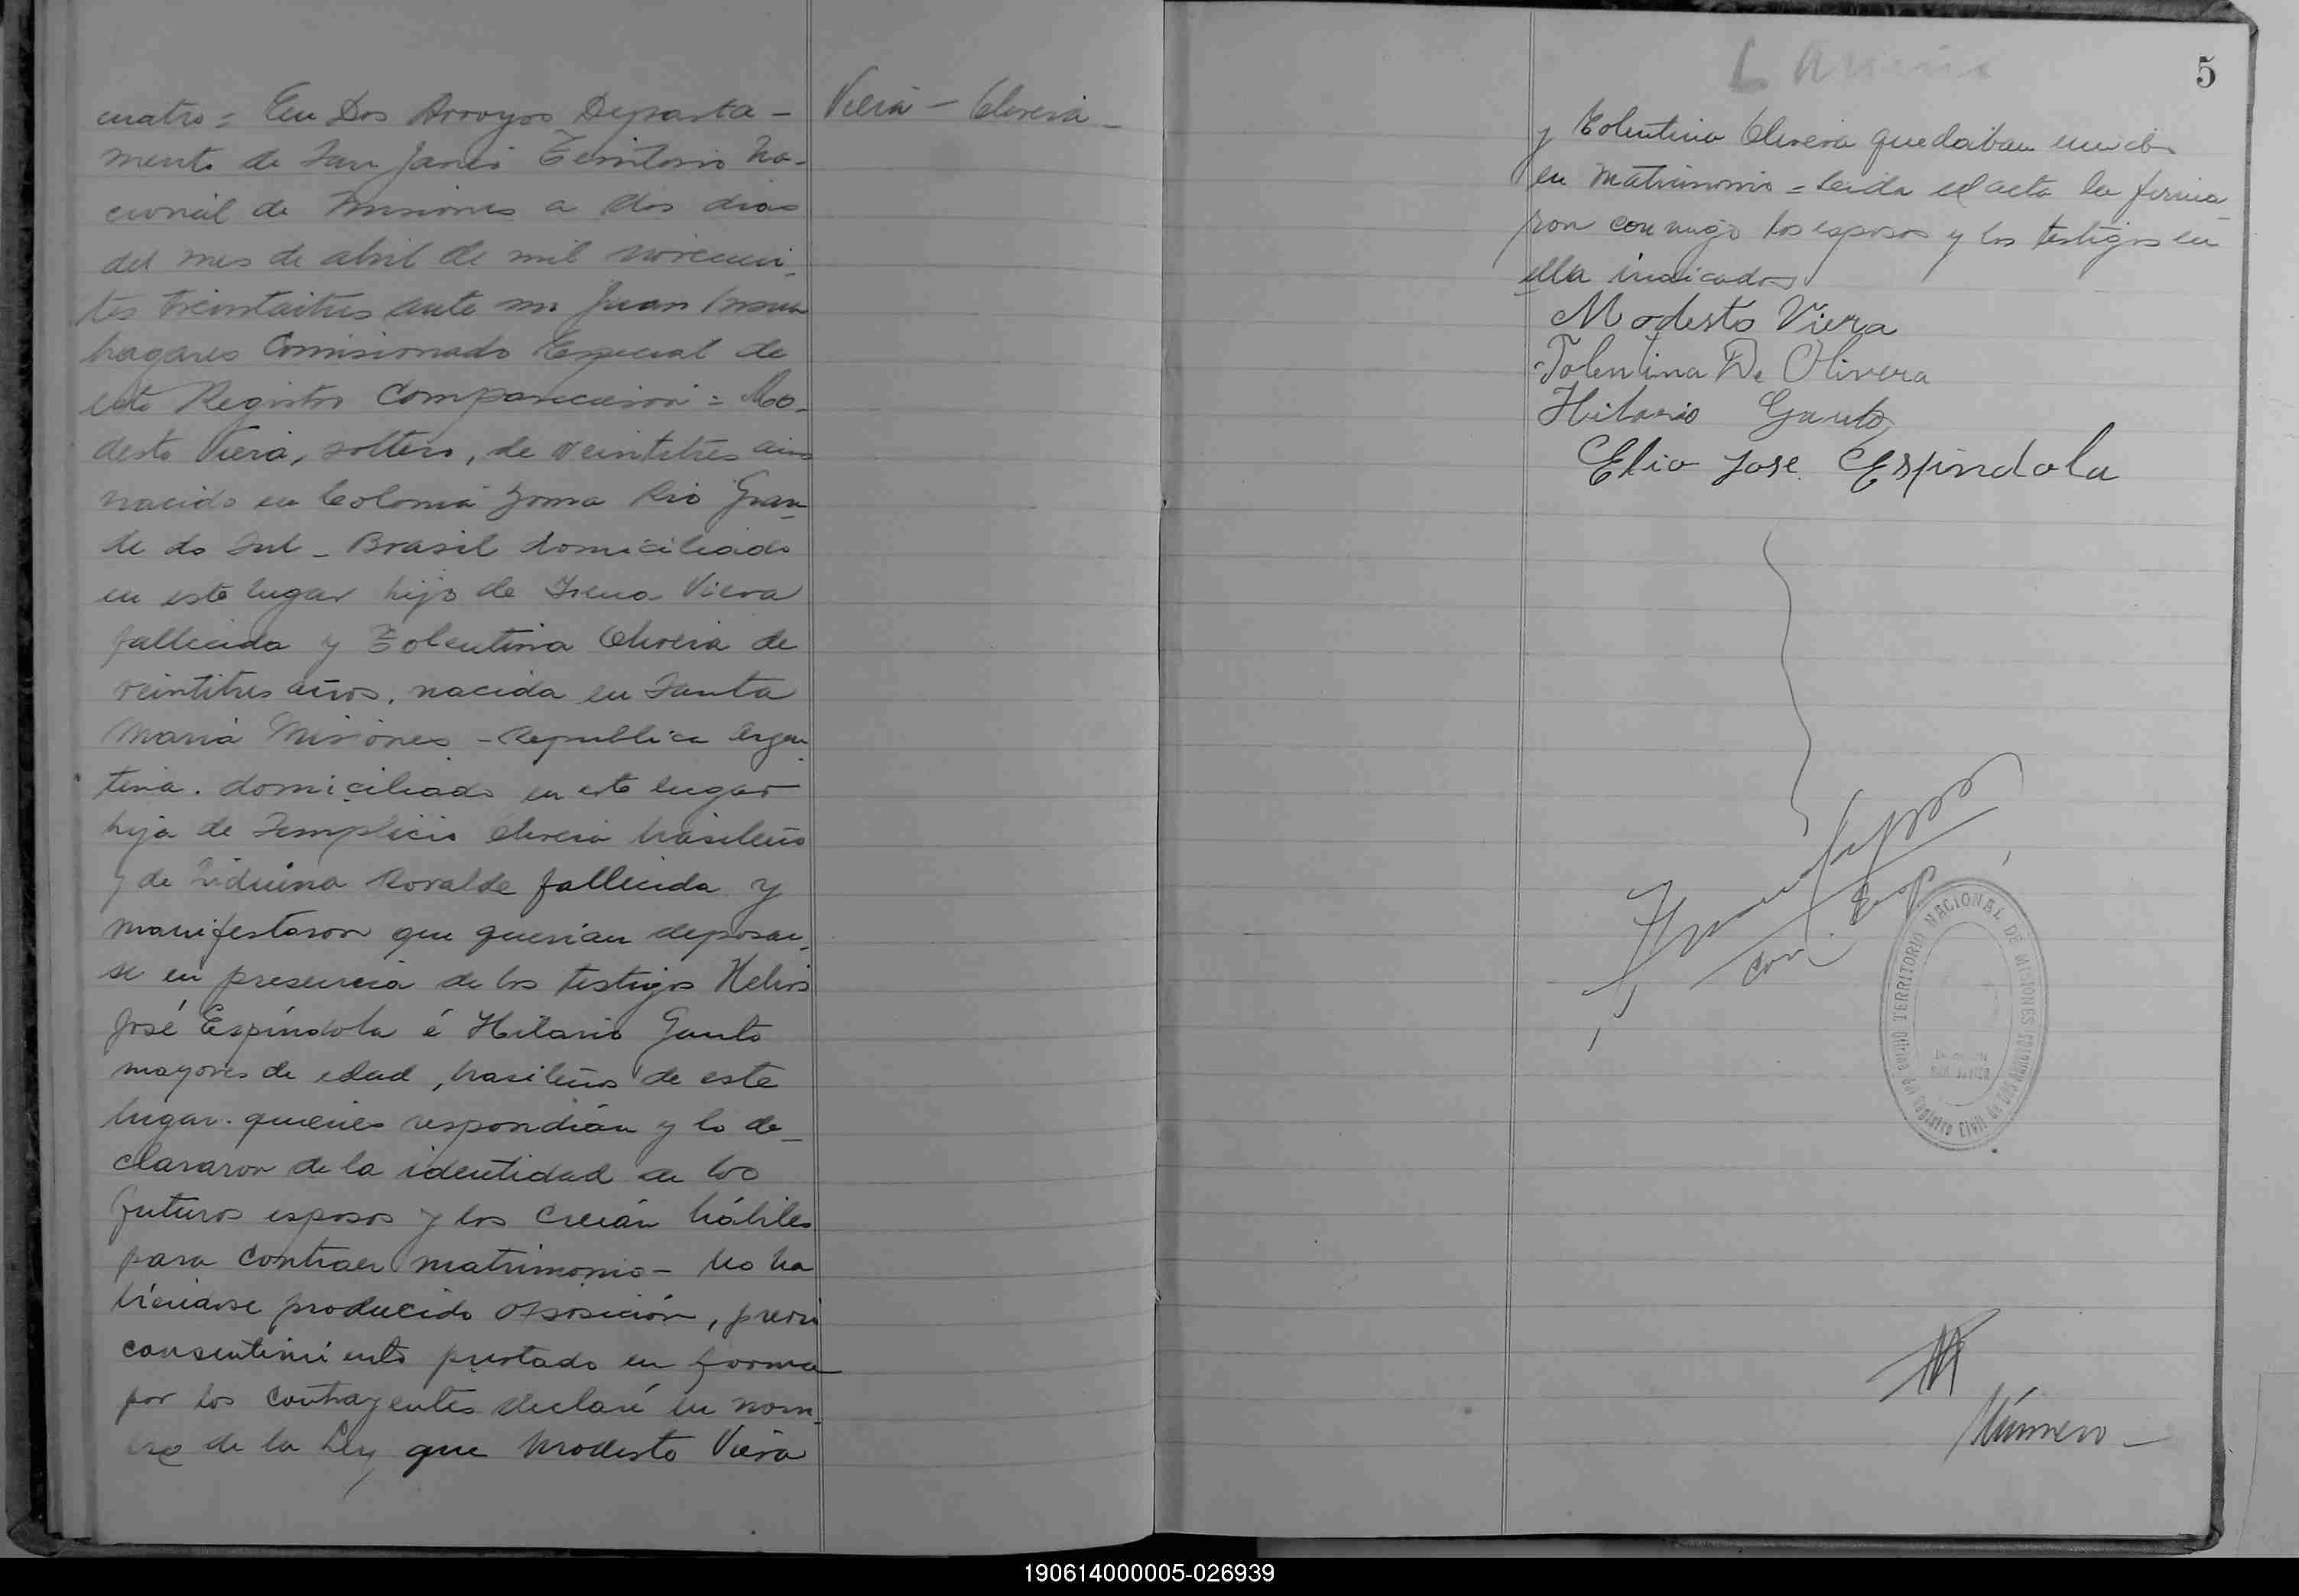 cuatro = En Dos Arroyos Departa-
mento de San Javier Territorio Na-
cional de Misiones a dos dias
del mes de abril de mil novecien-
tos treintaitres ante mi Juan
Comisionado Especial de
este Registro Comparecieron = Mo-
desto Viera, soltero, de veintitres años
nacido en Colonia Rio Gran-
de do Sul - Brasil domiciliado
en este lugar hijo de Viera
fallecida y Tolentina Olivera de
veintitres años, nacida en Santa
Maria Misiones - Republica Argen-
tina. domiciliada en este lugar
hija de Olivera brasileño
y de fallecida y
manifestaron que querian desposar-
se en presencia de los testigos Helio
José Espíndola é Hilario Gauto
mayores de edad, brasileños de este
lugar. quienes respondian y lo de-
clararon de la identidad de los
futuros esposos y los creian hábiles
para contraer matrimonio - No ha
biendose producido oposición, previo
consentimiento prestado en forma
por los contrayentes declaré en nom-
bre de la Ley que Modesto Viera
Viera - Olivera -
5
y Tolentina Olivera quedaban unidos
en matrimonio = Leida el acta la firma-
ron conmigo los esposos y los testigos en
ella indicados
Modesto Viera
Tolentina De Olivera
Hilario Gauto
Elio Jose Espindola
Com. Esp.
TERRITORIO NACIONAL DE MISIONES
Registro Civil
Número -
190614000005-026939